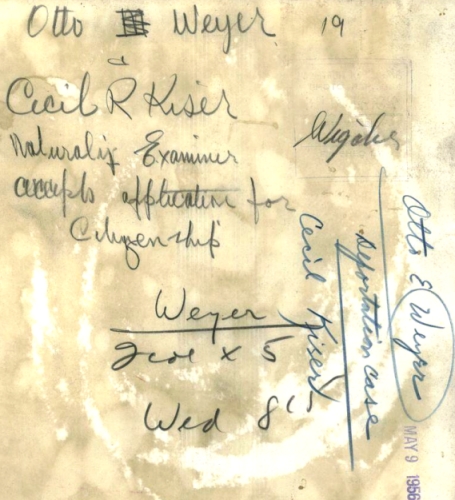 Otto Weyer 19
Cecil R Kiser
Naturaliz Examiner
accepts application for
Citizenship
Weyer
2 col x 5
Wed
Otto E Weyer
Deportation case
Cecil Kiser
MAY 9 1956